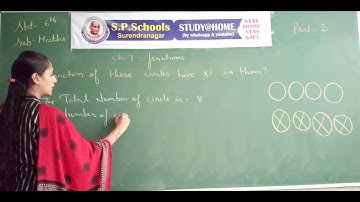 Std - 6th
Sub - Maths
S.P.Schools
Surendranagar
STUDY@HOME
(by whatsapp & youtube)
STAY
HOME
STAY
SAFE
Part - 2
Ch-7 - fractions
fraction of these circles have X's in them?
The Total Number of circle is = 8